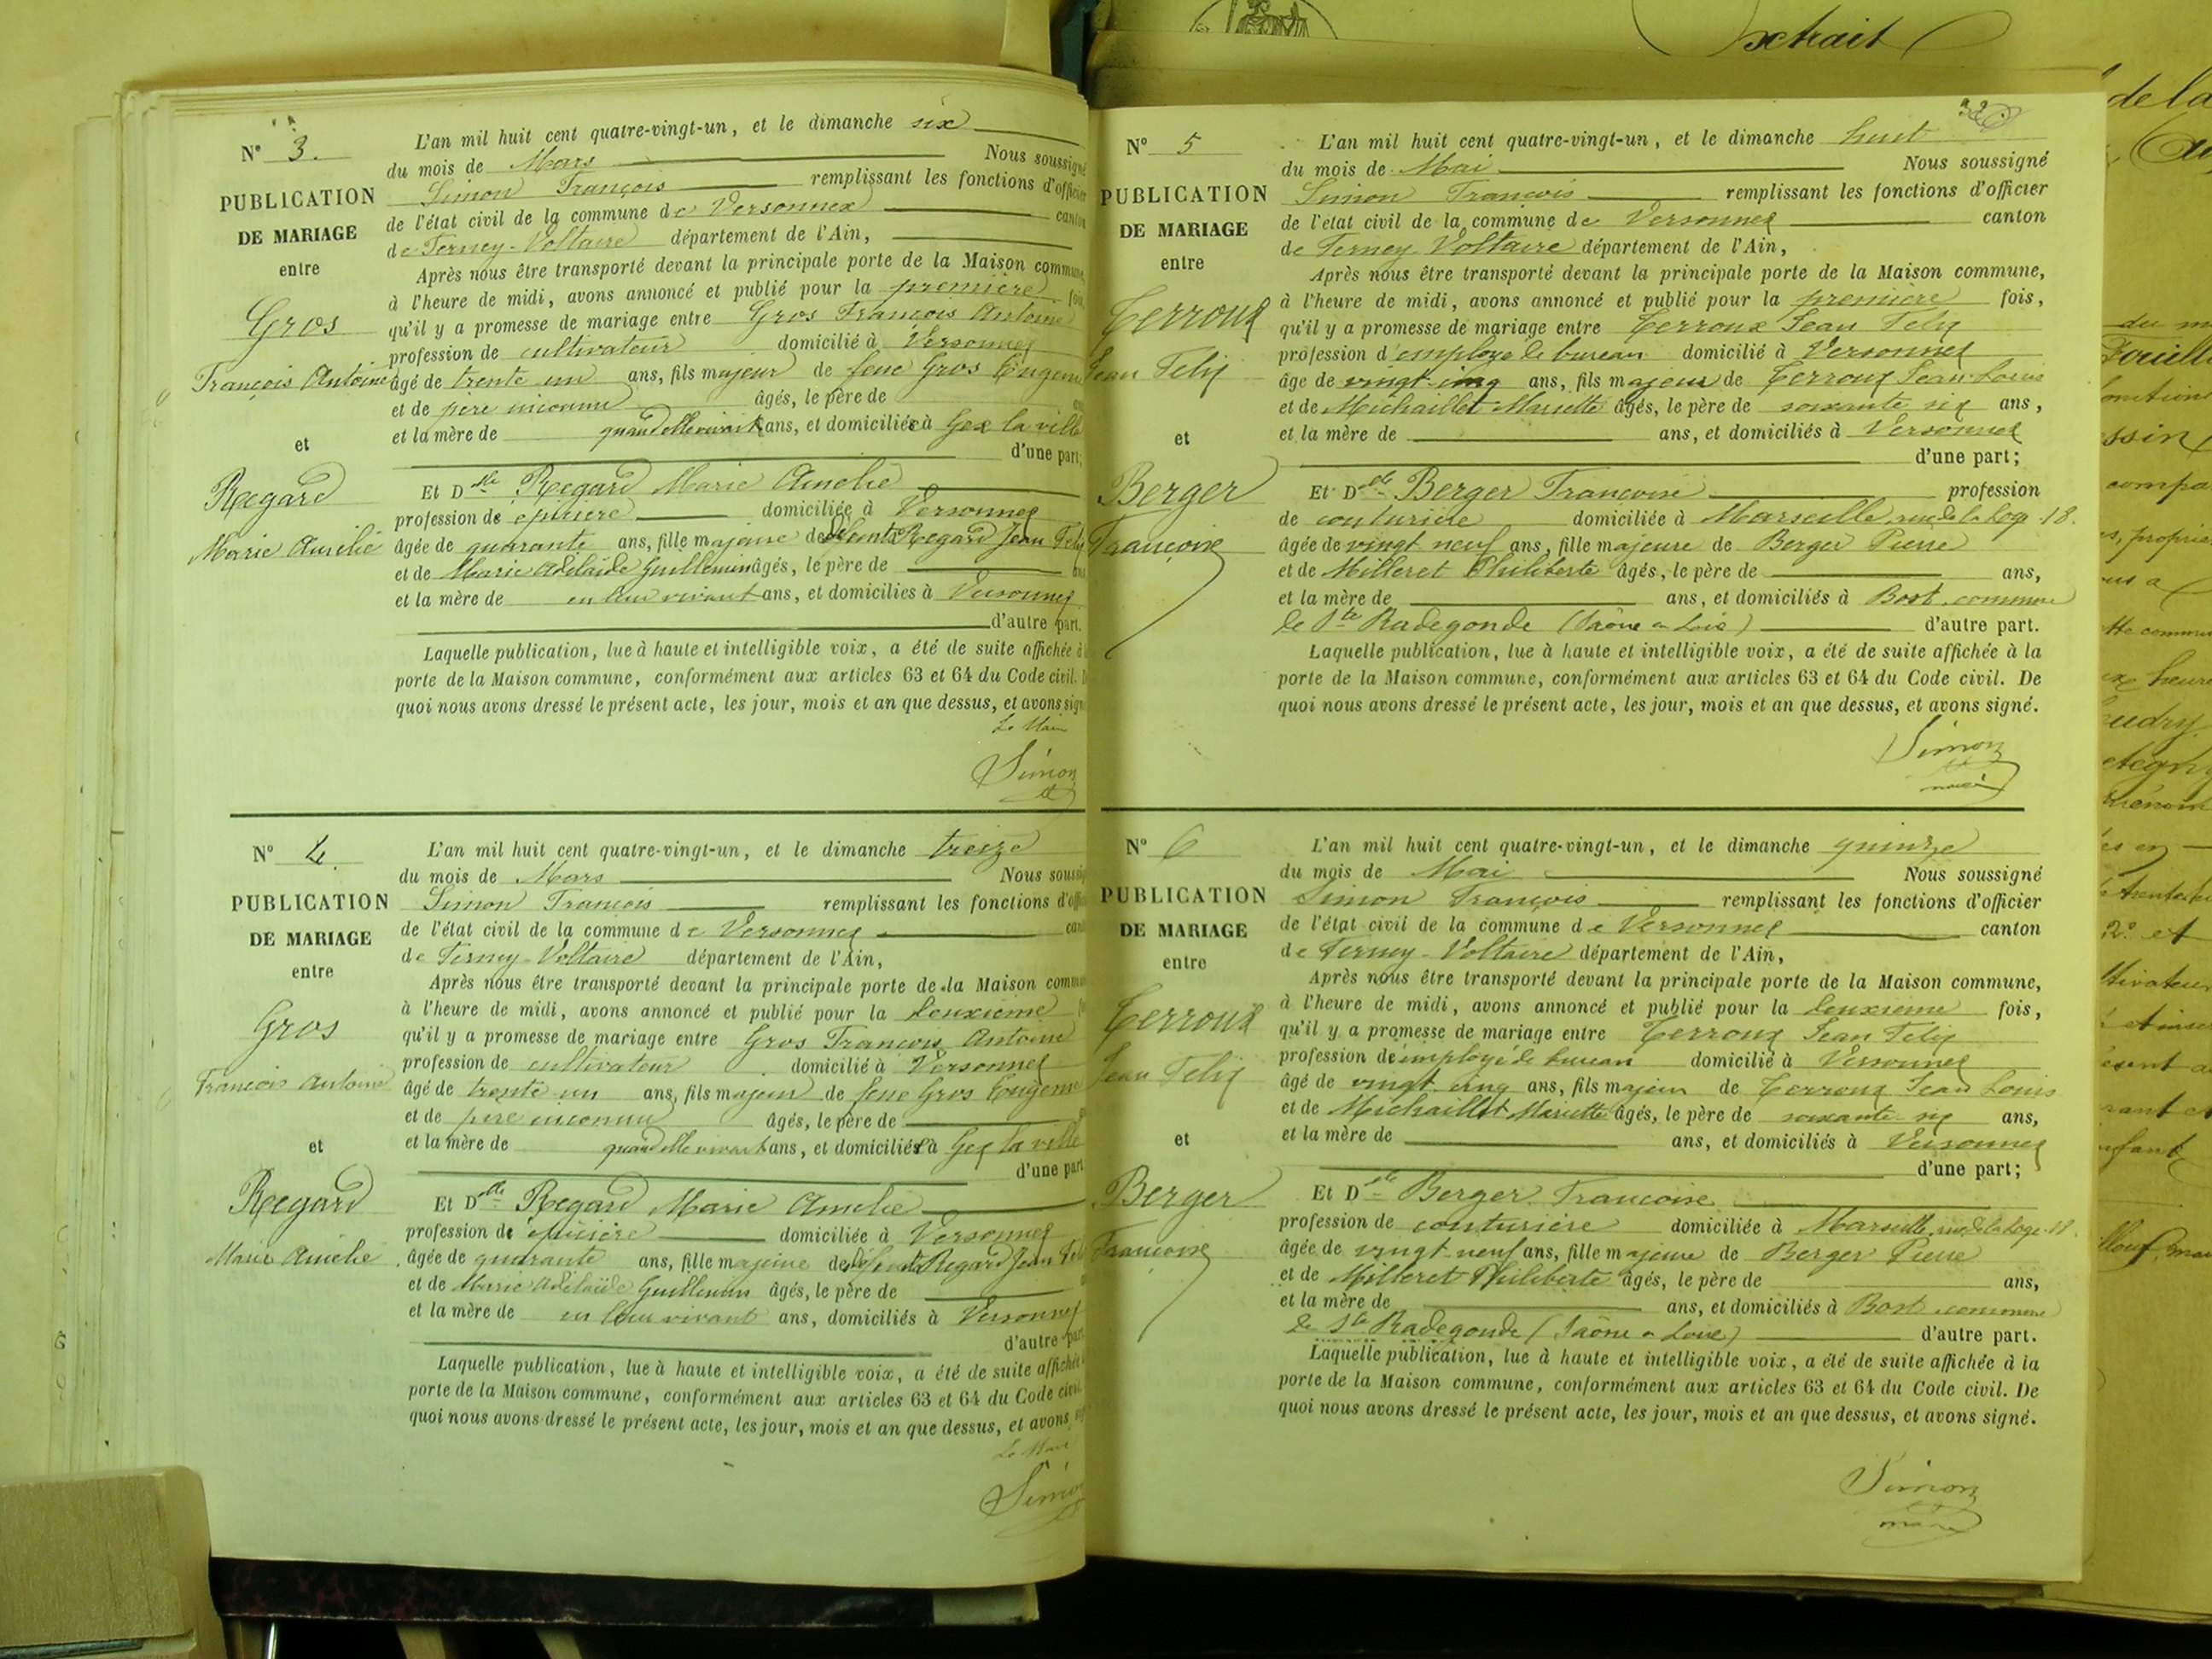 N° 3.
PUBLICATION
DE MARIAGE
entre
Gros
François Antoine
et
Regard
Marie Amélie
L'an mil huit cent quatre-vingt-un, et le dimanche six
du mois de Mars Nous soussigné
Simon François remplissant les fonctions d'officier
de l'état civil de la commune de Versonnex canton
de Ferney-Voltaire département de l'Ain,
Après nous être transporté devant la principale porte de la Maison commune,
à l'heure de midi, avons annoncé et publié pour la première fois,
qu'il y a promesse de mariage entre Gros François Antoine
profession de cultivateur domicilié à Versonnex
âgé de trente un ans, fils majeur de feue Gros Eugénie
et de père inconnu âgés, le père de
et la mère de quand elle vivait ans, et domiciliée à Gex la ville
d'une part;
Et Dlle Regard Marie Amélie
profession de épicière domiciliée à Versonnex
âgée de quarante ans, fille majeure de défunts Regard Jean Felix
et de Marie Adelaïde Guillemin âgés, le père de ans
et la mère de en leur vivant ans, et domiciliés à Versonnex
d'autre part.
Laquelle publication, lue à haute et intelligible voix, a été de suite affichée à
porte de la Maison commune, conformément aux articles 63 et 64 du Code civil.
quoi nous avons dressé le présent acte, les jour, mois et an que dessus, et avons sign
Le Maire
Simon
N° 4.
PUBLICATION
DE MARIAGE
entre
Gros
François Antoine
et
Regard
Marie Amélie
L'an mil huit cent quatre-vingt-un, et le dimanche treize
du mois de Mars Nous soussig
Simon François remplissant les fonctions d'offi
de l'état civil de la commune de Versonnex can
de Ferney-Voltaire département de l'Ain,
Après nous être transporté devant la principale porte de la Maison comm
à l'heure de midi, avons annoncé et publié pour la deuxième
qu'il y a promesse de mariage entre Gros François Antoine
profession de cultivateur domicilié à Versonnex
âgé de trente un ans, fils majeur de feue Gros Eugénie
et de père inconnu âgés, le père de
et la mère de quand elle vivait ans, et domiciliée à Gex la ville
d'une part
Et Dlle Regard Marie Amelie
profession de épicière domiciliée à Versonnex
âgée de quarante ans, fille majeure de défunts Regard Jean Felix
et de Marie Adélaïde Guillemin âgés, le père de
et la mère de en leur vivant ans, domiciliés à Versonnex
d'autre part
Laquelle publication, lue à haute et intelligible voix, a été de suite affichée
porte de la Maison commune, conformément aux articles 63 et 64 du Code civil
quoi nous avons dressé le présent acte, les jour, mois et an que dessus, et avons
Le Maire
Simon
N° 5
PUBLICATION
DE MARIAGE
entre
Terroux
Jean Felix
et
Berger
Françoise
L'an mil huit cent quatre-vingt-un, et le dimanche huit
du mois de Mai Nous soussigné
Simon François remplissant les fonctions d'officier
de l'état civil de la commune de Versonnex canton
de Ferney Voltaire département de l'Ain,
Après nous être transporté devant la principale porte de la Maison commune,
à l'heure de midi, avons annoncé et publié pour la première fois,
qu'il y a promesse de mariage entre Terroux Jean Felix
profession d'employé de bureau domicilié à Versonnex
âgé de vingt-cinq ans, fils majeur de Terroux Jean-Louis
et de Michaillet Mariette âgés, le père de soixante six ans,
et la mère de ans, et domiciliés à Versonnex
d'une part;
Et Dlle Berger Françoise profession
de couturière domiciliée à Marseille, rue de la Loge 18.
âgée de vingt neuf ans, fille majeure de Berger Pierre
et de Milleret Philiberte âgés, le père de ans,
et la mère de ans, et domiciliés à Bost commune
de Ste Radegonde (Saône et Loire) d'autre part.
Laquelle publication, lue à haute et intelligible voix, a été de suite affichée à la
porte de la Maison commune, conformément aux articles 63 et 64 du Code civil. De
quoi nous avons dressé le présent acte, les jour, mois et an que dessus, et avons signé.
Simon
maire
N° 6
PUBLICATION
DE MARIAGE
entre
Terroux
Jean Felix
et
Berger
Françoise
L'an mil huit cent quatre-vingt-un, et le dimanche quinze
du mois de Mai Nous soussigné
Simon François remplissant les fonctions d'officier
de l'état civil de la commune de Versonnex canton
de Ferney-Voltaire département de l'Ain,
Après nous être transporté devant la principale porte de la Maison commune,
à l'heure de midi, avons annoncé et publié pour la deuxième fois,
qu'il y a promesse de mariage entre Terroux Jean Felix
profession de employé de bureau domicilié à Versonnex
âgé de vingt cinq ans, fils majeur de Terroux Jean Louis
et de Michaillet Mariette âgés, le père de soixante six ans,
et la mère de ans, et domiciliés à Versonnex
d'une part;
Et Dlle Berger Françoise
profession de couturière domiciliée à Marseille, rue de la Loge 18.
âgée de vingt-neuf ans, fille majeure de Berger Pierre
et de Milleret Philiberte âgés, le père de ans,
et la mère de ans, et domiciliés à Bost commune
de Ste Radegonde (Saône et Loire) d'autre part.
Laquelle publication, lue à haute et intelligible voix, a été de suite affichée à la
porte de la Maison commune, conformément aux articles 63 et 64 du Code civil. De
quoi nous avons dressé le présent acte, les jour, mois et an que dessus, et avons signé.
Simon
maire
Extrait
de la